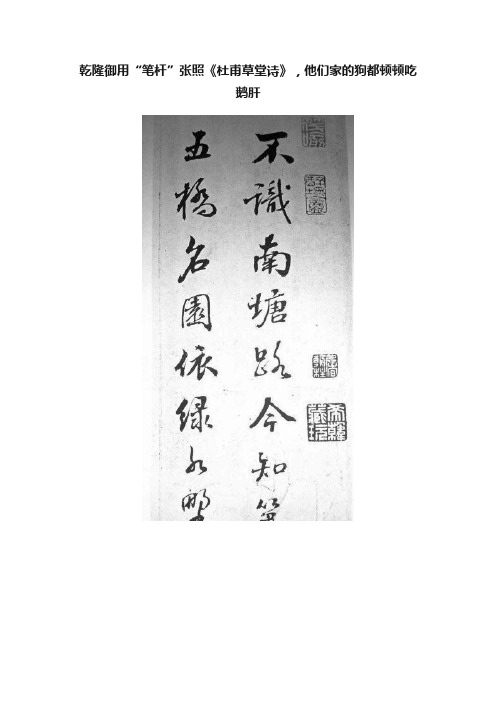 乾隆御用“笔杆”张照《杜甫草堂诗》，他们家的狗都顿顿吃
鹅肝
不識南塘路今知第
五橋名園依緑水野